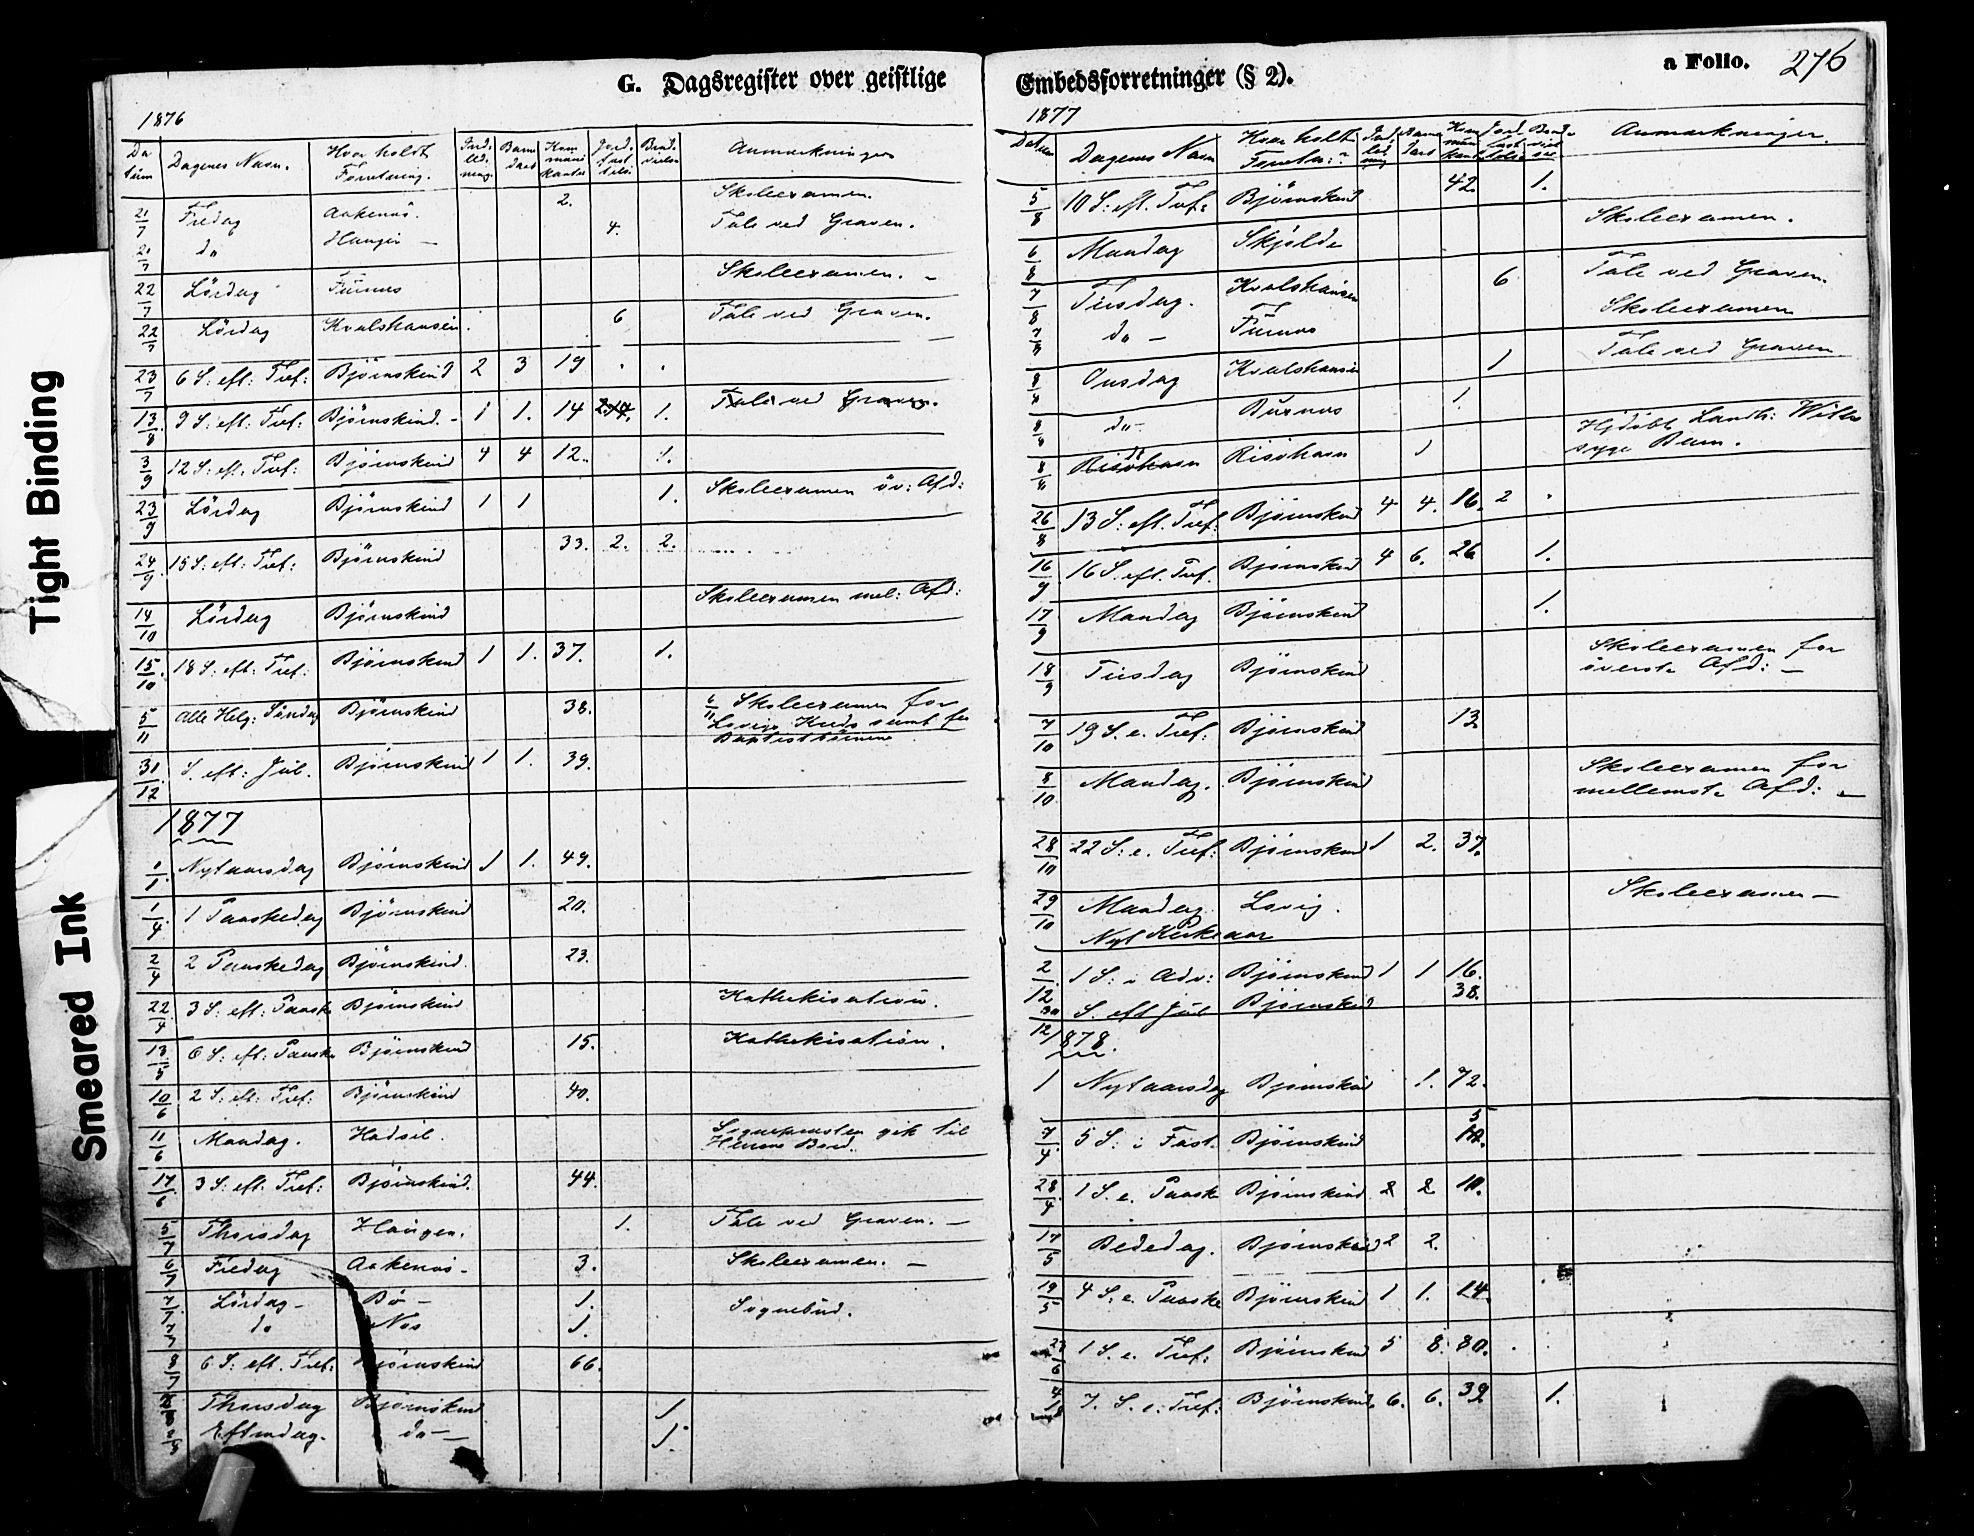 Tight Binding
Smeared Ink
G. Dagsregister over geistlige
1876
Da tum | Dagenes Navn. | Hvor holdt Forretning. | Ind. led. ning. | Barne daab | Kom muni kanter | Jord. fæst. telse. | Brud. vielse | Anmærkninger
21/7 Fredag Aakenæs. 2. Skoleexamen.
21/7 do Haugen — 4. Tale ved Graven.
22/7 Lördag Fürnes Skoleexamen. —
22/7 Lördag Kvalshausen. 6 Tale ved Graven.
23/7 6 S: eft: Tref: Björnskind 2 3 19 . .
13/8 9 S: eft: Tref: Björnskind. - 1 1. 14 1. Tale ved Graven.
3/9 12 S: eft. Tref: Björnskind 4 4 12. 1.
23/9 Lördag Björnskind 1 1 1. Skoleexamen öv: Afd:
24/9 15 S: eft: Tref: Björnskind 33. 2. 2.
14/10 Lördag Björnskind Skoleexamen mel: Afd:
15/10 18 S. eft: Tref: Björnskind 1 1. 37. 1.
5/11 Alle Helg: Söndag Björnskind 38. 6/11 Skoleexamen for
Lovigs Kreds samt for
Baptistbörnene
31/12 S. eft: Jul. Björnskind 1 1. 39.
1877
1/1 Nytaarsdag Björnskind 1 1. 49.
1/4 1 Paaskedag Björnskind 20.
2/4 2 Paaskedag Björnskind. 23.
22/4 3 S. eft: Paaske Björnskind Kathekisation.
13/5 6 S. eft: Paaske Björnskind 15. Kathekisation.
10/6 2 S: eft: Tref: Björnskind 40.
11/6 Mandag. Hadsel. Sognepresten gik til
Herrens Bord.
17/6 3 S: eft. Tref: Björnskind. 44.
5/7 Thorsdag Haugen. 1. Tale ved Graven. —
6/7 Fredag Aakenæs - 3. Skoleexamen. —
7/7 Lördag - Bö - 1. Sognebud.
7/7 do Nös 1.
8/7 6 S: eft. Tref. Björnskind 66.
Thorsdag Björnskind 1
Eftmdag. do — 1.
Embedsforretninger (§ 2).
a Folio. 276
1877
Datum | Dagenes Navn | Hvor holdt Forretn: | Ind led ning | Barne daab | Kom muni kant | Jord fæst telse | Brud vielse | Anmærkninger.
5/8 10 S: eft. Tref: Björnskind 42. 1.
6/8 Mandag Skjolde Skoleexamen.
7/8 Tirsdag. Kvalshausen 6 Tale ved Graven.
7/8 do — Fürnes Skoleexamen
8/8 Onsdag Kvalshausen 1 Tale ved Graven
8/8 do - Burnæs 1.
8/8 do Risöhavn Risöhavn 1 Hjdöbt Landh:
syge Barn.
26/8 13 S: eft. Tref: Björnskind 4 4. 16. 2 .
16/9 16 S. eft. Tref. Björnskind 4 6. 26 1.
17/9 Mandag Björnskind 1.
18/9 Tirsdag Björnskind Skoleexamen for
överste Afd: —
7/10 19 S. e. Tref: Björnskind 13
8/10 Mandag. Björnskind Skoleexamen for
mellemste Afd: —
28/10 22 S: e. Tref: Björnskind 1 2. 37.
29/10 Mandag. Lovig. Skoleexamen —
Nyt Kirkeaar
2/12 1 S: i Adv: Björnskind 1 1 16.
30/12 S. eft Jul Björnskind 38.
1878.
1 Nytaarsdag Björnskind 1. 72.
7/4 5 S: i Fast. Björnskind 5
28/4 1 S. e. Paaske Björnskind 2 2 10.
17/5 Bededag. Björnskind 2 2.
19/5 4 S. e. Paaske Björnskind 1 1. 14.
23/6 1 S. e. Tref: Björnskind 5 8. 80. .
4/8 7. S. e: Tref: Björnskind. 6. 6. 39 1.